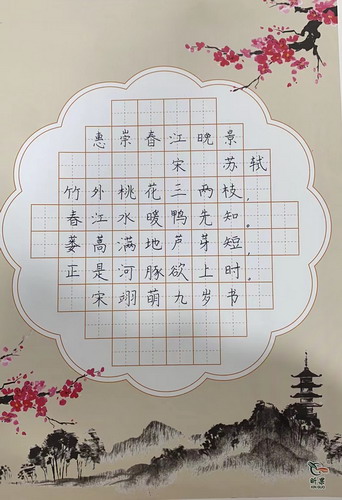 惠崇春江晚景
宋 苏轼
竹外桃花三两枝，
春江水暖鸭先知。
蒌蒿满地芦芽短，
正是河豚欲上时。
宋翊萌九岁书